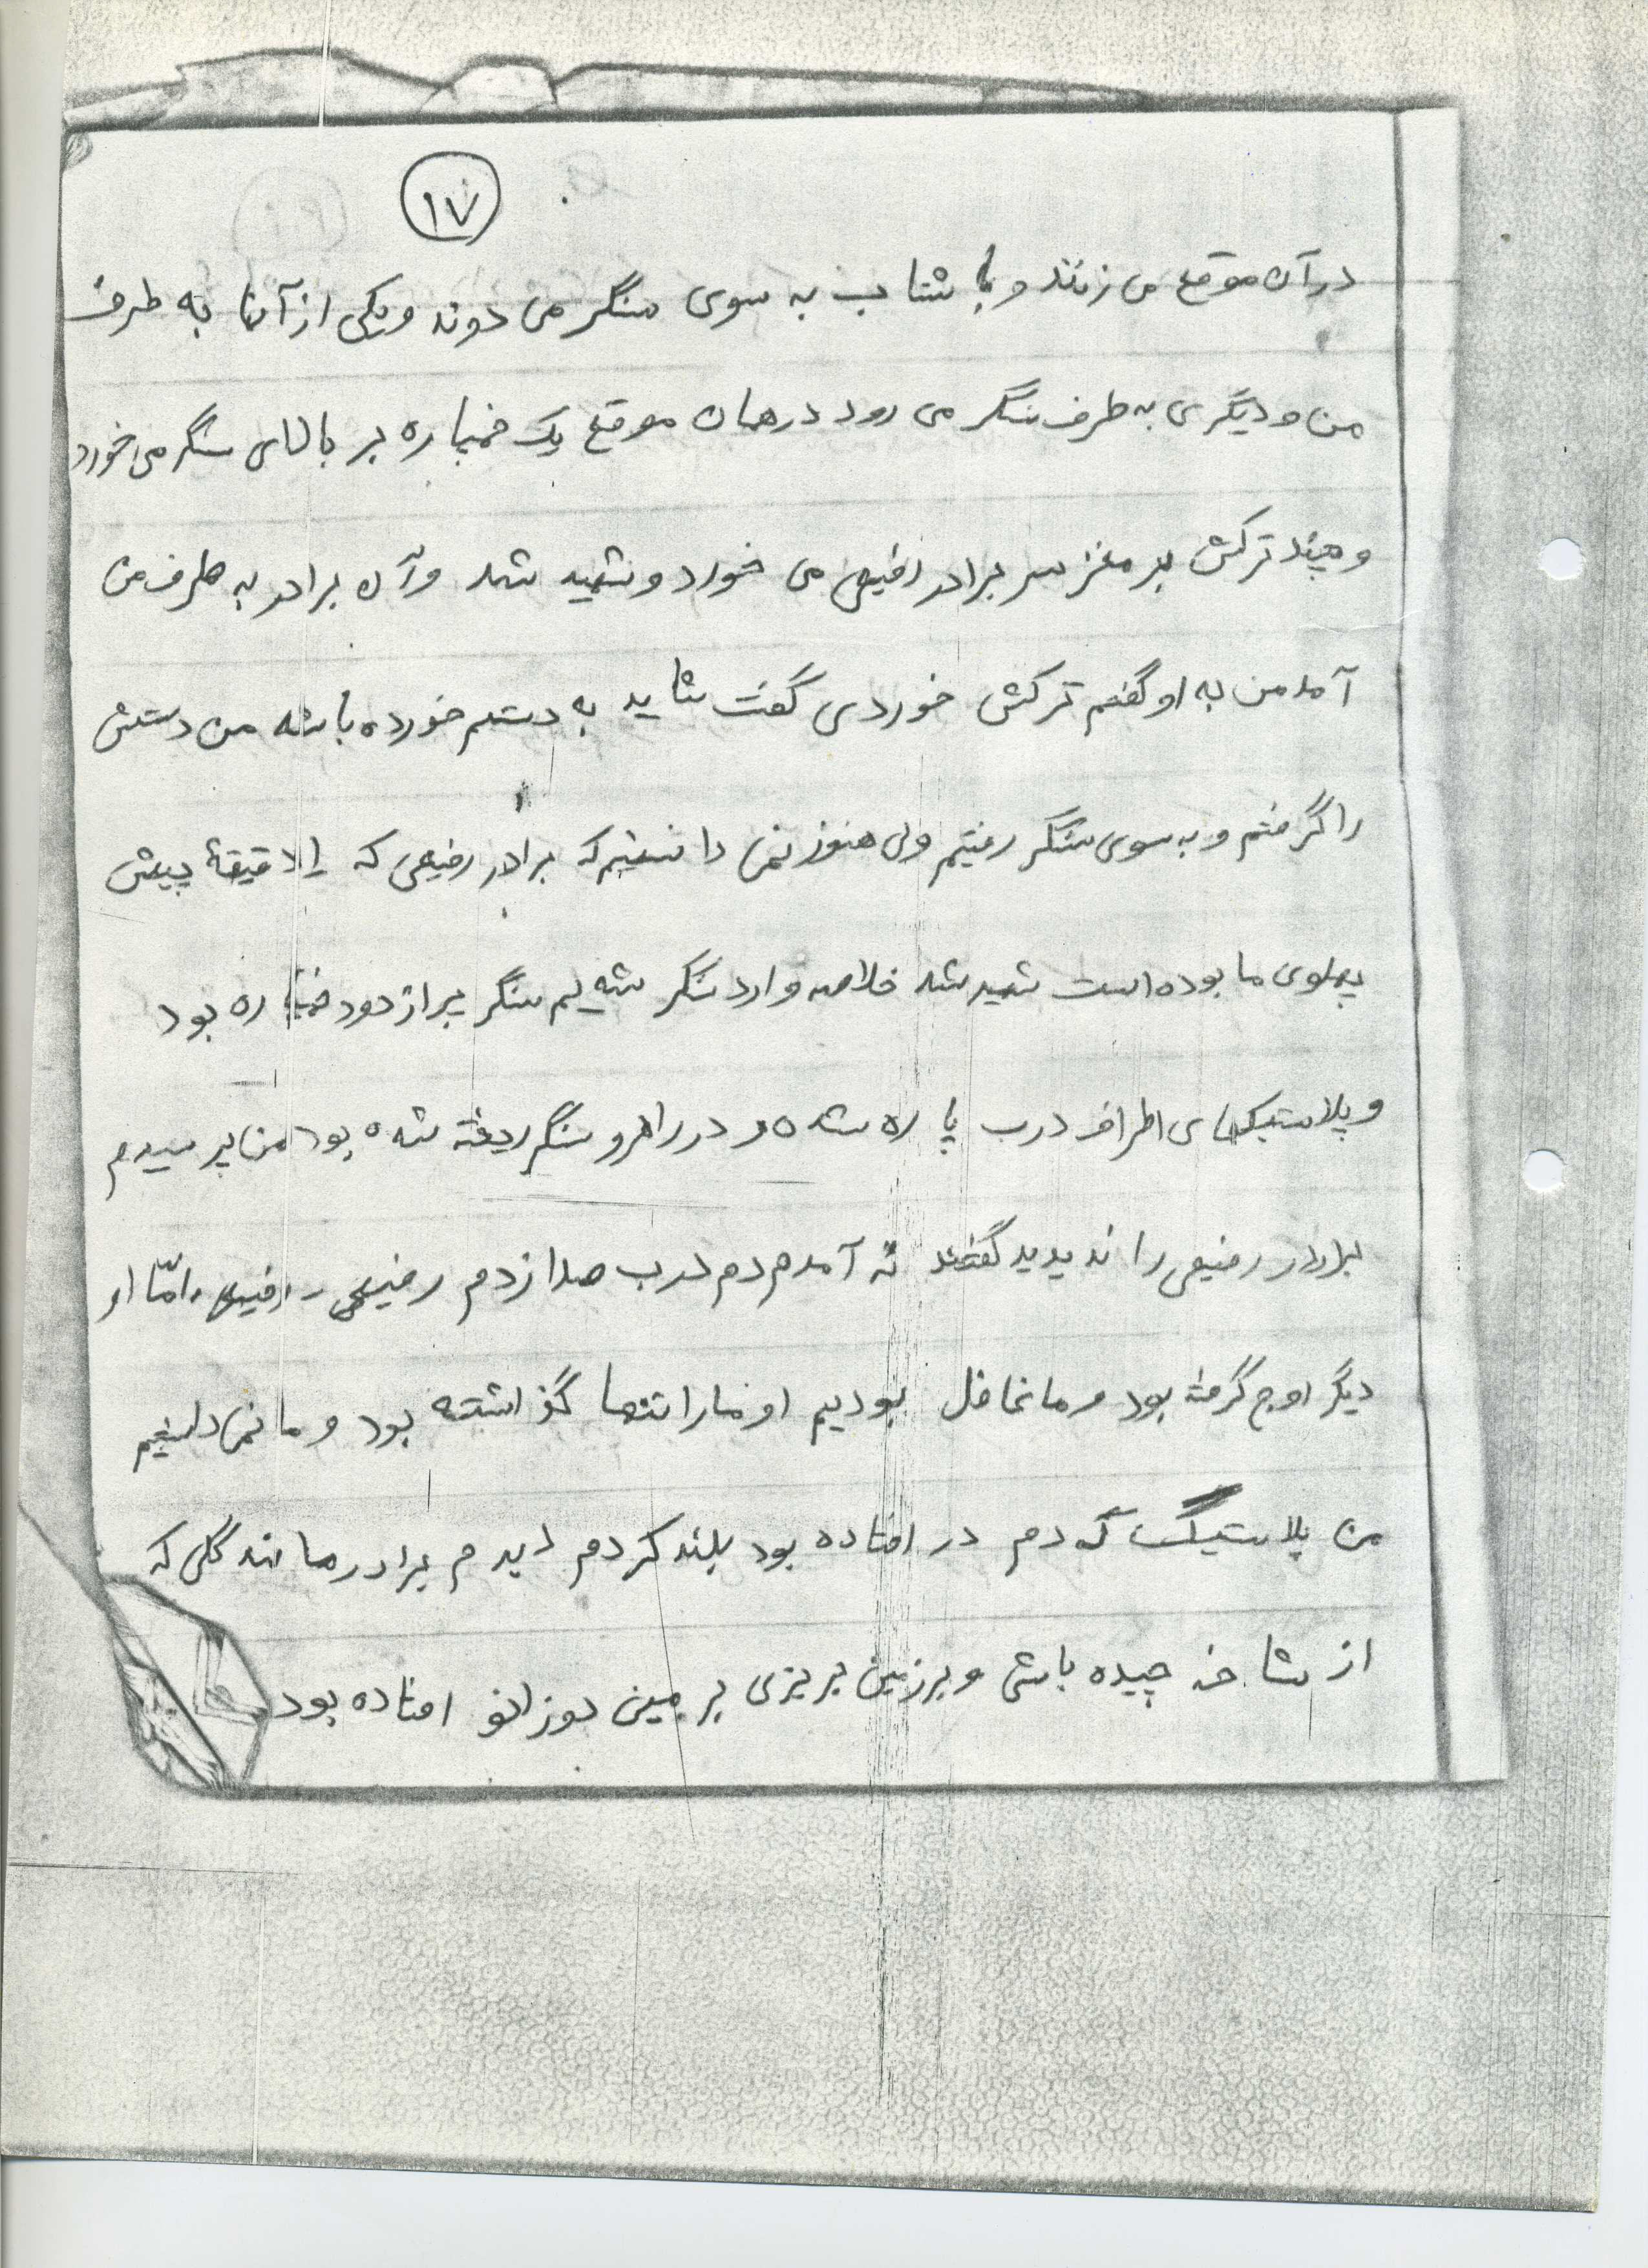 ۱۷
در آن موقع می زنند و با شتاب به سوی سنگر می دوند و یکی از آنها به طرف
من و دیگری به طرف سنگر می رود در همان موقع یک خمپاره بر بالای سنگر می خورد
و چند ترکش بر مغز سر برادر رفیعی می خورد و شهید شد و آن برادر به طرف من
آمد من به او گفتم ترکش خوردی گفت شاید به دستم خورده باشه من دستش
را گرفتم و به سوی سنگر رفتیم ولی هنوز نمی دانستیم که برادر رفیعی که دقیقهٔ پیش
پهلوی ما بوده است شهید شد خلاصه وارد سنگر شدیم سنگر پر از دود خمپاره بود
و پلاستیکهای اطراف درب پاره شده و در راهرو سنگر ریخته شده بود من پرسیدم
برادر رفیعی را ندیدید گفتند نه آمدم دم درب صدا زدم رفیعی - رفیعی، امّا او
دیگر اوج گرفته بود و ما غافل بودیم او ما را تنها گذاشته بود و ما نمی دانستیم
من پلاستیک که دم در افتاده بود بلند کردم دیدم برادر مانند گلی که
از شاخه چیده باشی و بر زمین بریزی بر زمین دوزانو افتاده بود